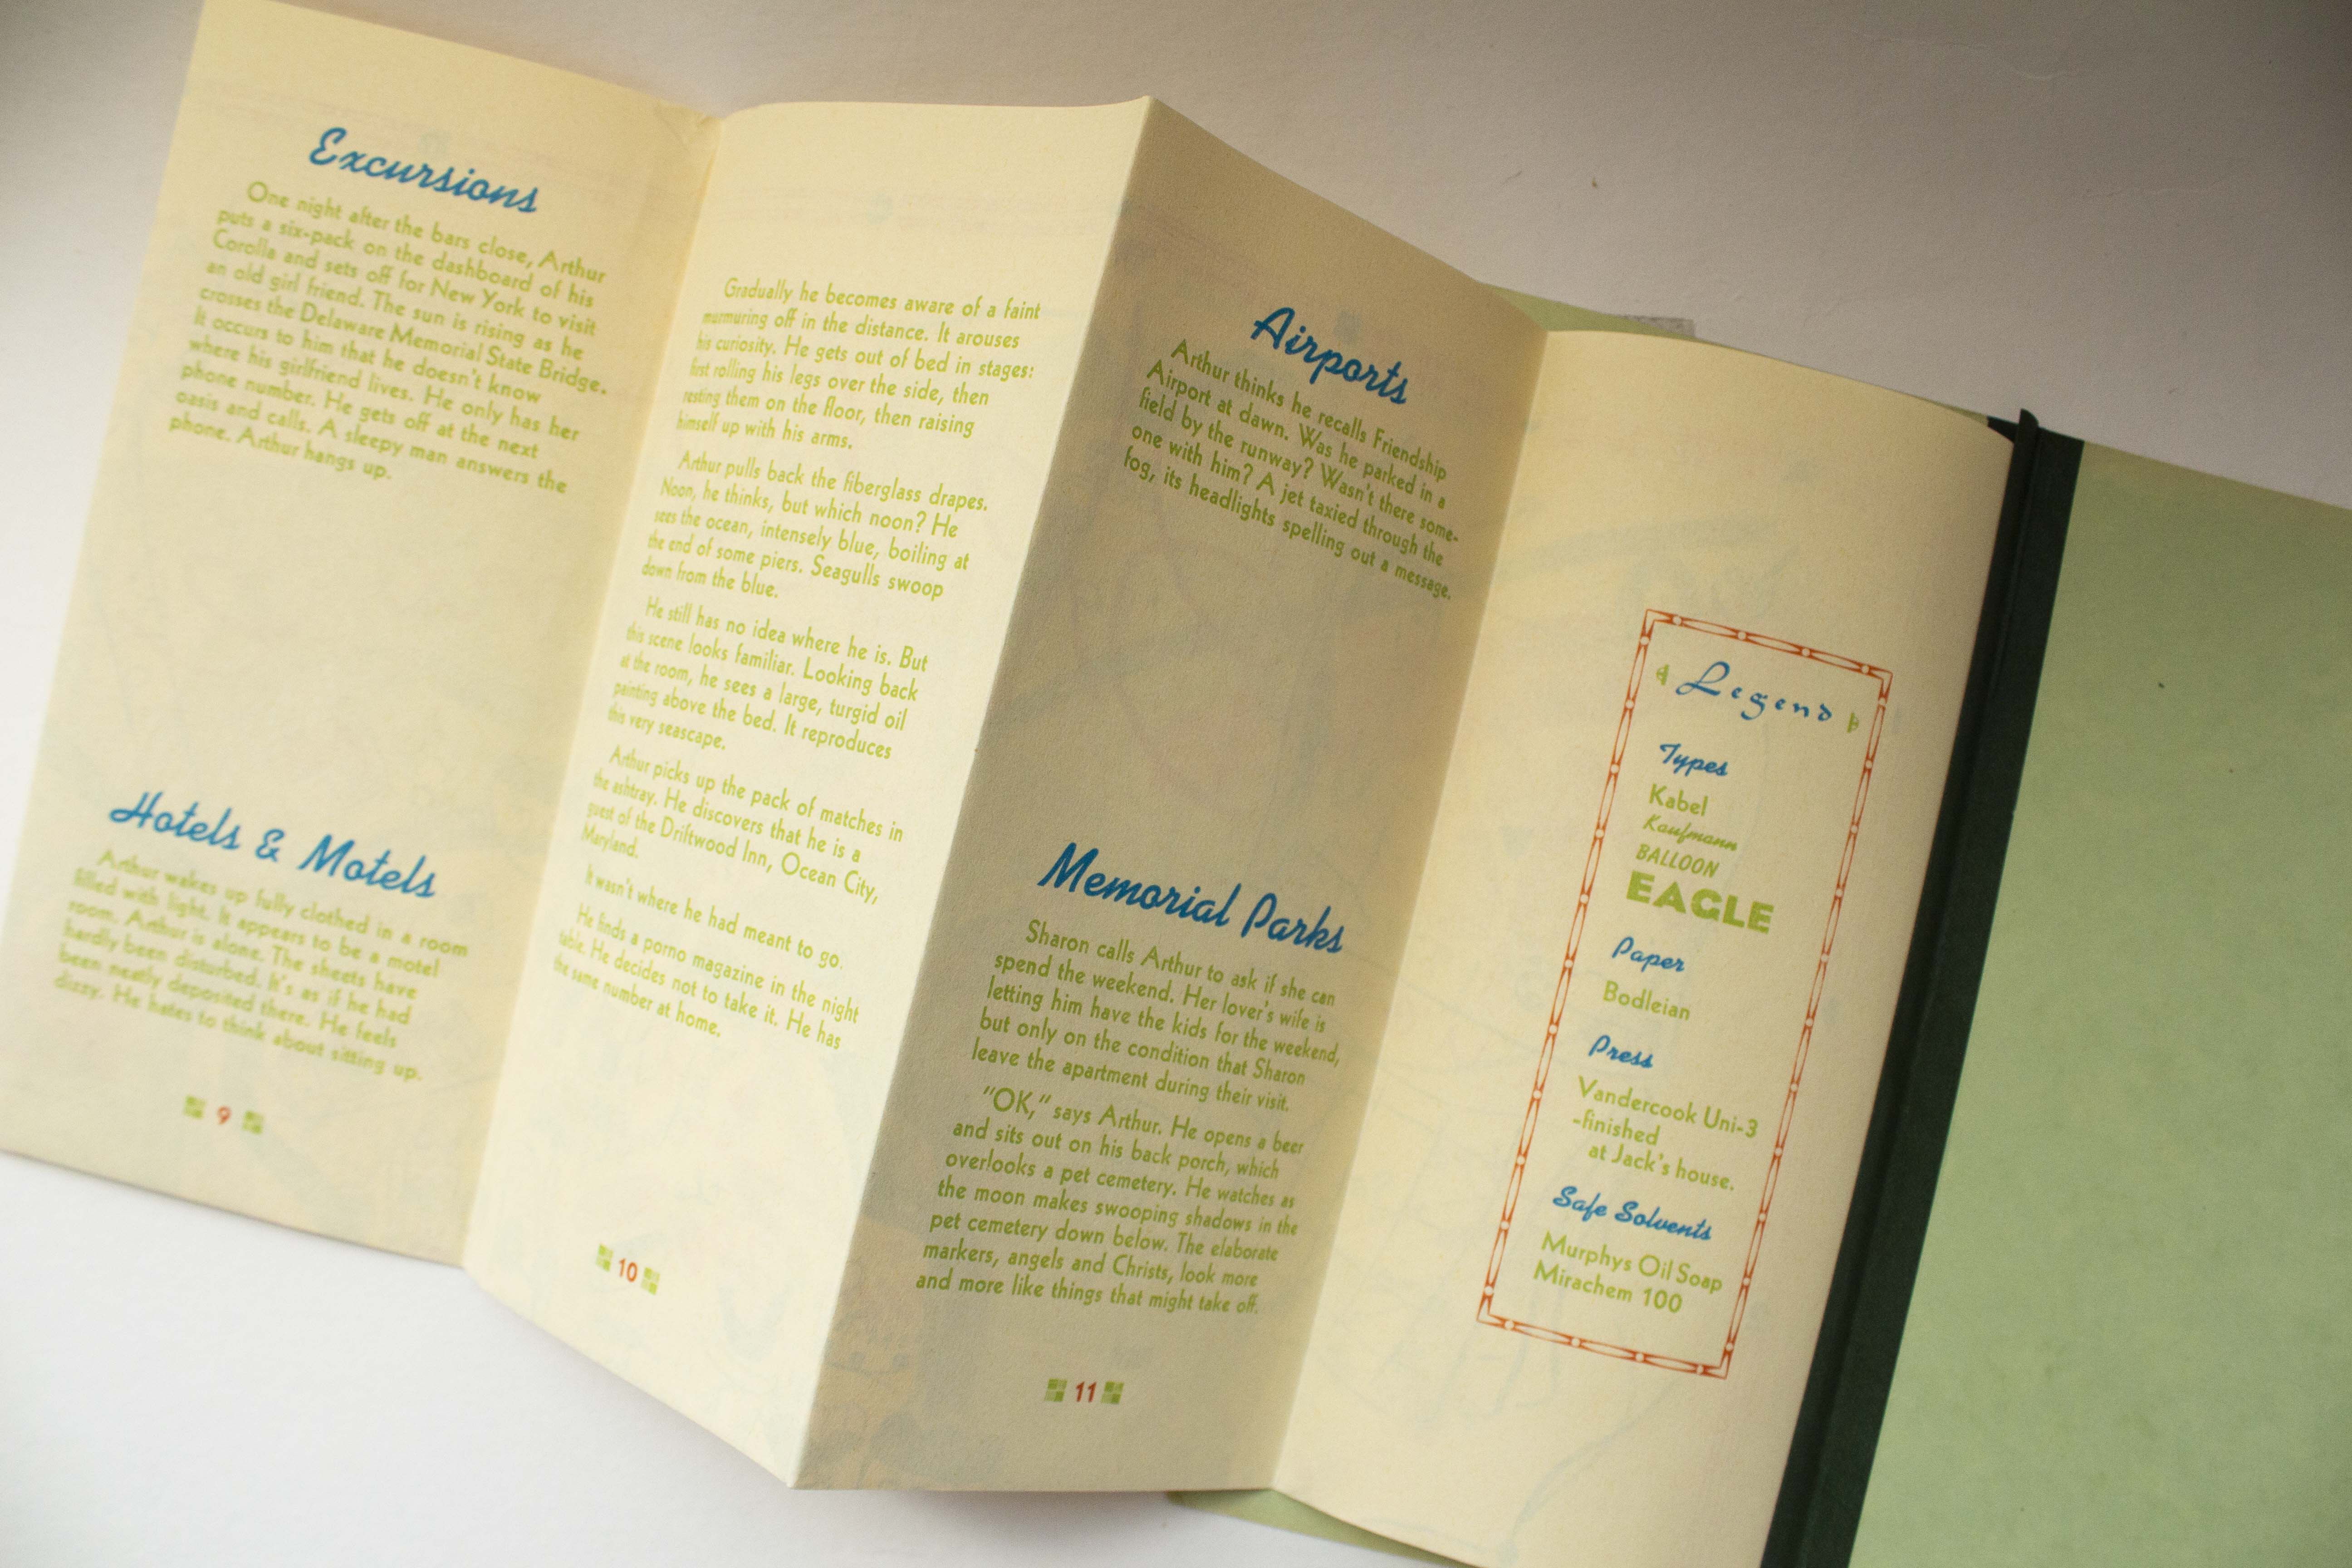 Excursions
One night after the bars close, Arthur
puts a six-pack on the dashboard of his
Corolla and sets off for New York to visit
an old girl friend. The sun is rising as he
crosses the Delaware Memorial State Bridge.
It occurs to him that he doesn't know
where his girlfriend lives. He only has her
phone number. He gets off at the next
oasis and calls. A sleepy man answers the
phone. Arthur hangs up.
Hotels & Motels
Arthur wakes up fully clothed in a room
filled with light. It appears to be a motel
room. Arthur is alone. The sheets have
hardly been disturbed. It's as if he had
been neatly deposited there. He feels
dizzy. He hates to think about sitting up.
9
Gradually he becomes aware of a faint
murmuring off in the distance. It arouses
his curiosity. He gets out of bed in stages:
first rolling his legs over the side, then
resting them on the floor, then raising
himself up with his arms.
Arthur pulls back the fiberglass drapes.
Noon, he thinks, but which noon? He
sees the ocean, intensely blue, boiling at
the end of some piers. Seagulls swoop
down from the blue.
He still has no idea where he is. But
this scene looks familiar. Looking back
at the room, he sees a large, turgid oil
painting above the bed. It reproduces
this very seascape.
Arthur picks up the pack of matches in
the ashtray. He discovers that he is a
guest of the Driftwood Inn, Ocean City,
Maryland.
It wasn't where he had meant to go.
He finds a porno magazine in the night
table. He decides not to take it. He has
the same number at home.
10
Airports
Arthur thinks he recalls Friendship
Airport at dawn. Was he parked in a
field by the runway? Wasn't there some-
one with him? A jet taxied through the
fog, its headlights spelling out a message.
Memorial Parks
Sharon calls Arthur to ask if she can
spend the weekend. Her lover's wife is
letting him have the kids for the weekend,
but only on the condition that Sharon
leave the apartment during their visit.
"OK," says Arthur. He opens a beer
and sits out on his back porch, which
overlooks a pet cemetery. He watches as
the moon makes swooping shadows in the
pet cemetery down below. The elaborate
markers, angels and Christs, look more
and more like things that might take off.
11
Legend
Types
Kabel
Kaufmann
BALLOON
EAGLE
Paper
Bodleian
Press
Vandercook Uni-3
-finished
at Jack's house.
Safe Solvents
Murphys Oil Soap
Mirachem 100